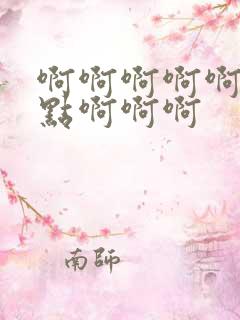 啊啊啊啊啊
點啊啊啊
南師